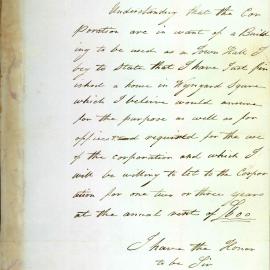 Understanding that the Cor
poration are in want of a Build
ing to be used as a Town Hall I
beg to state that I have Just fin
ished a home in Wynyard Square
which I believe would answer
for the purpose as well as for
offices required for the use
of the corporation and which I
will be willing to let to the Corpor
ation for one two or three years
at the annual rent of £600
I have the Honor
to be Sir